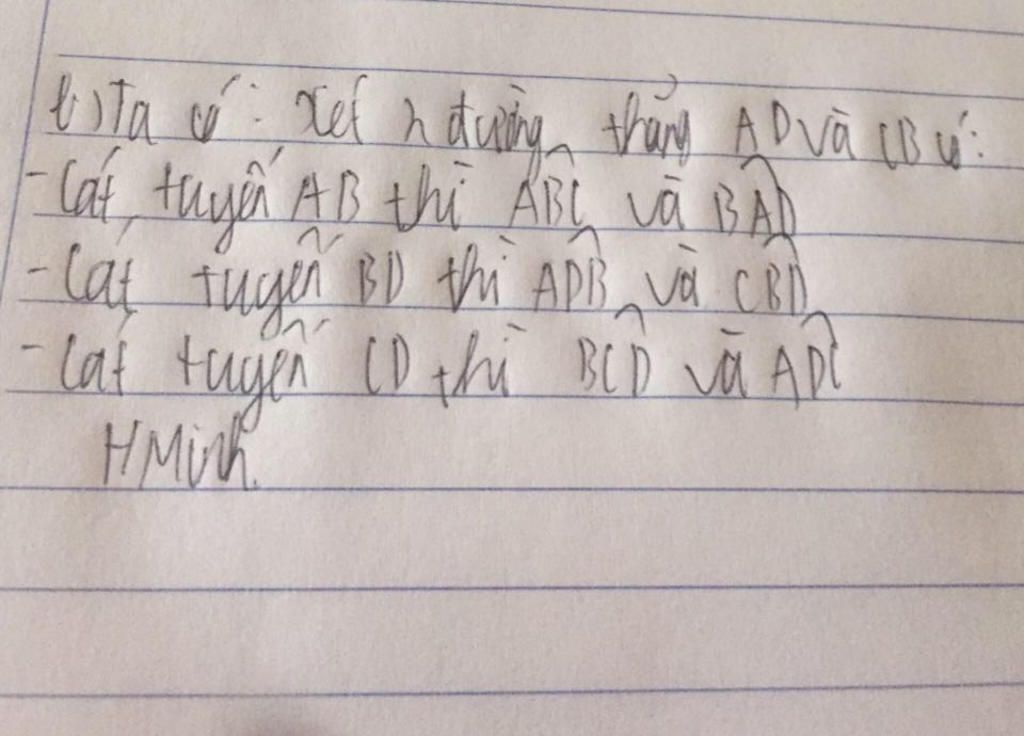 b) Ta có: Xét 2 đường thẳng AD và CB có:
- Cát tuyến AB thì ABC và BAD
- Cát tuyến BD thì ADB và CBD
- Cát tuyến CD thì BCD và ADC
HMinh.